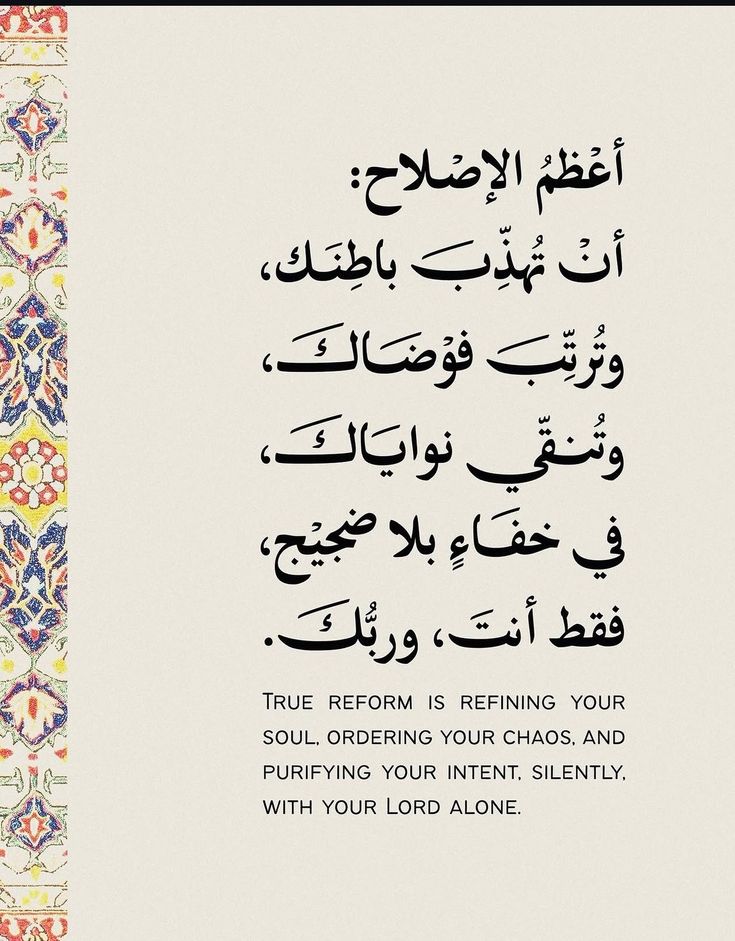 أعْظمُ الإصْلاح:
أنْ تُهذِّبَ باطِنَك،
وتُرتِّبَ فوْضَاكَ،
وتُنقّي نواياَكَ،
في خفَاءٍ بلا ضجيْج،
فقط أنتَ، وربُّكَ.
True reform is refining your
soul, ordering your chaos, and
purifying your intent, silently,
with your Lord alone.